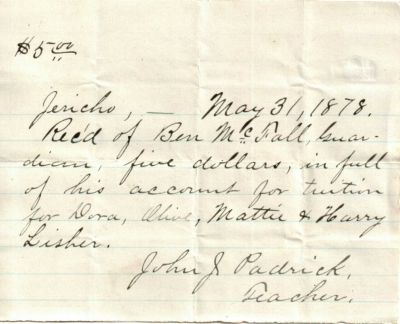 $5.00
Jericho, — May 31, 1878.
Rec'd of Ben McFall, Guar-
dian, five dollars, in full
of his account for tuition
for Dora, Olive, Mattie & Harry
Lisher.
John J Padrick,
Teacher.